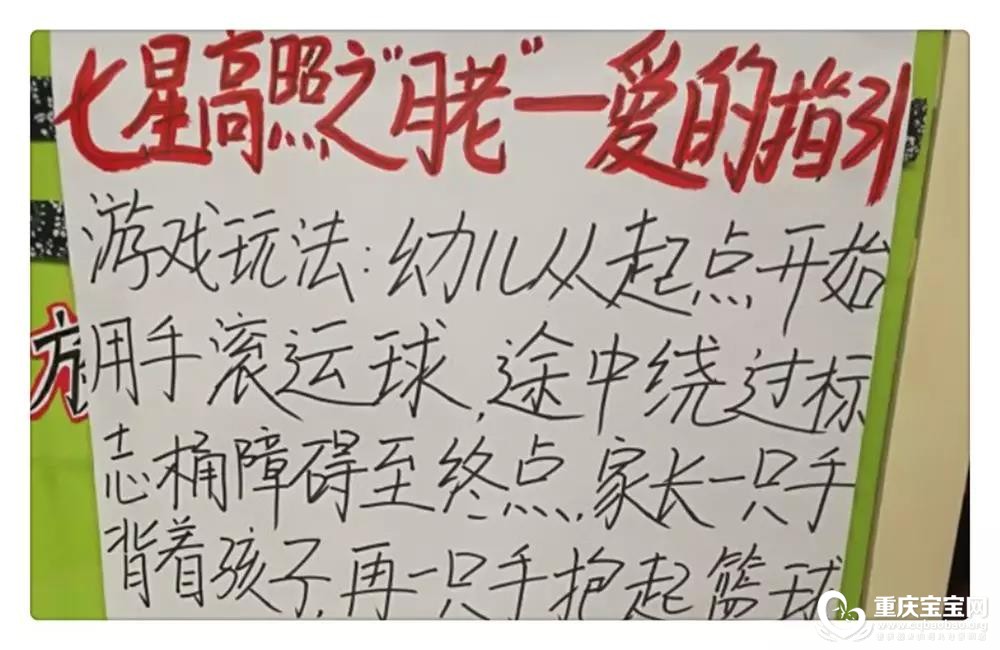 七星高照之"月老"一爱的指引
游戏玩法:幼儿从起点开始
用手滚运球,途中绕过标
志桶障碍至终点,家长一只手
背着孩子,再一只手抱起篮球
方
重庆宝宝网
www.cqbaobao.org